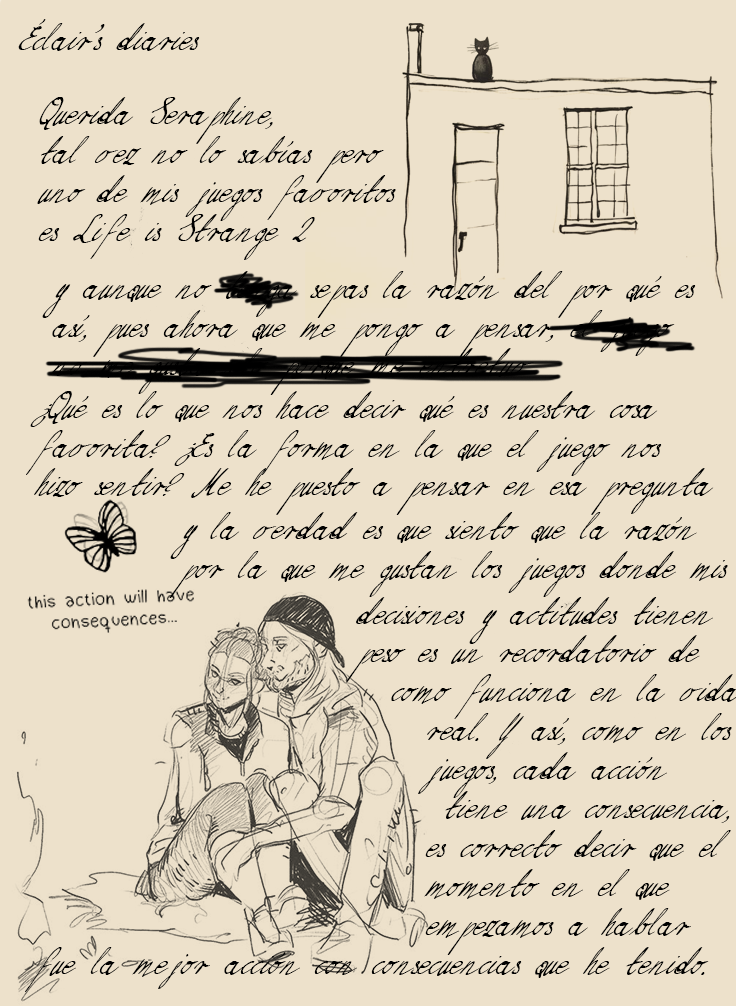 Éclair's diaries
Querida Seraphine,
tal vez no lo sabías pero
uno de mis juegos favoritos
es Life is Strange 2
y aunque no sepas la razón del por qué es
así, pues ahora que me pongo a pensar,
¿Qué es lo que nos hace decir qué es nuestra cosa
favorita? ¿Es la forma en la que el juego nos
hizo sentir? Me he puesto a pensar en esa pregunta
y la verdad es que siento que la razón
por la que me gustan los juegos donde mis
this action will have
consequences...
decisiones y actitudes tienen
peso es un recordatorio de
como funciona en la vida
real. Y así, como en los
juegos, cada acción
tiene una consecuencia,
es correcto decir que el
momento en el que
empezamos a hablar
fue la mejor acción con consecuencias que he tenido.